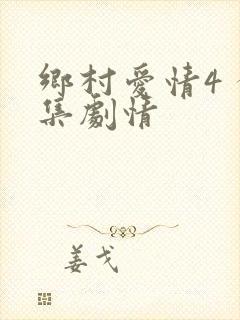 鄉村愛情4
集劇情
姜戈